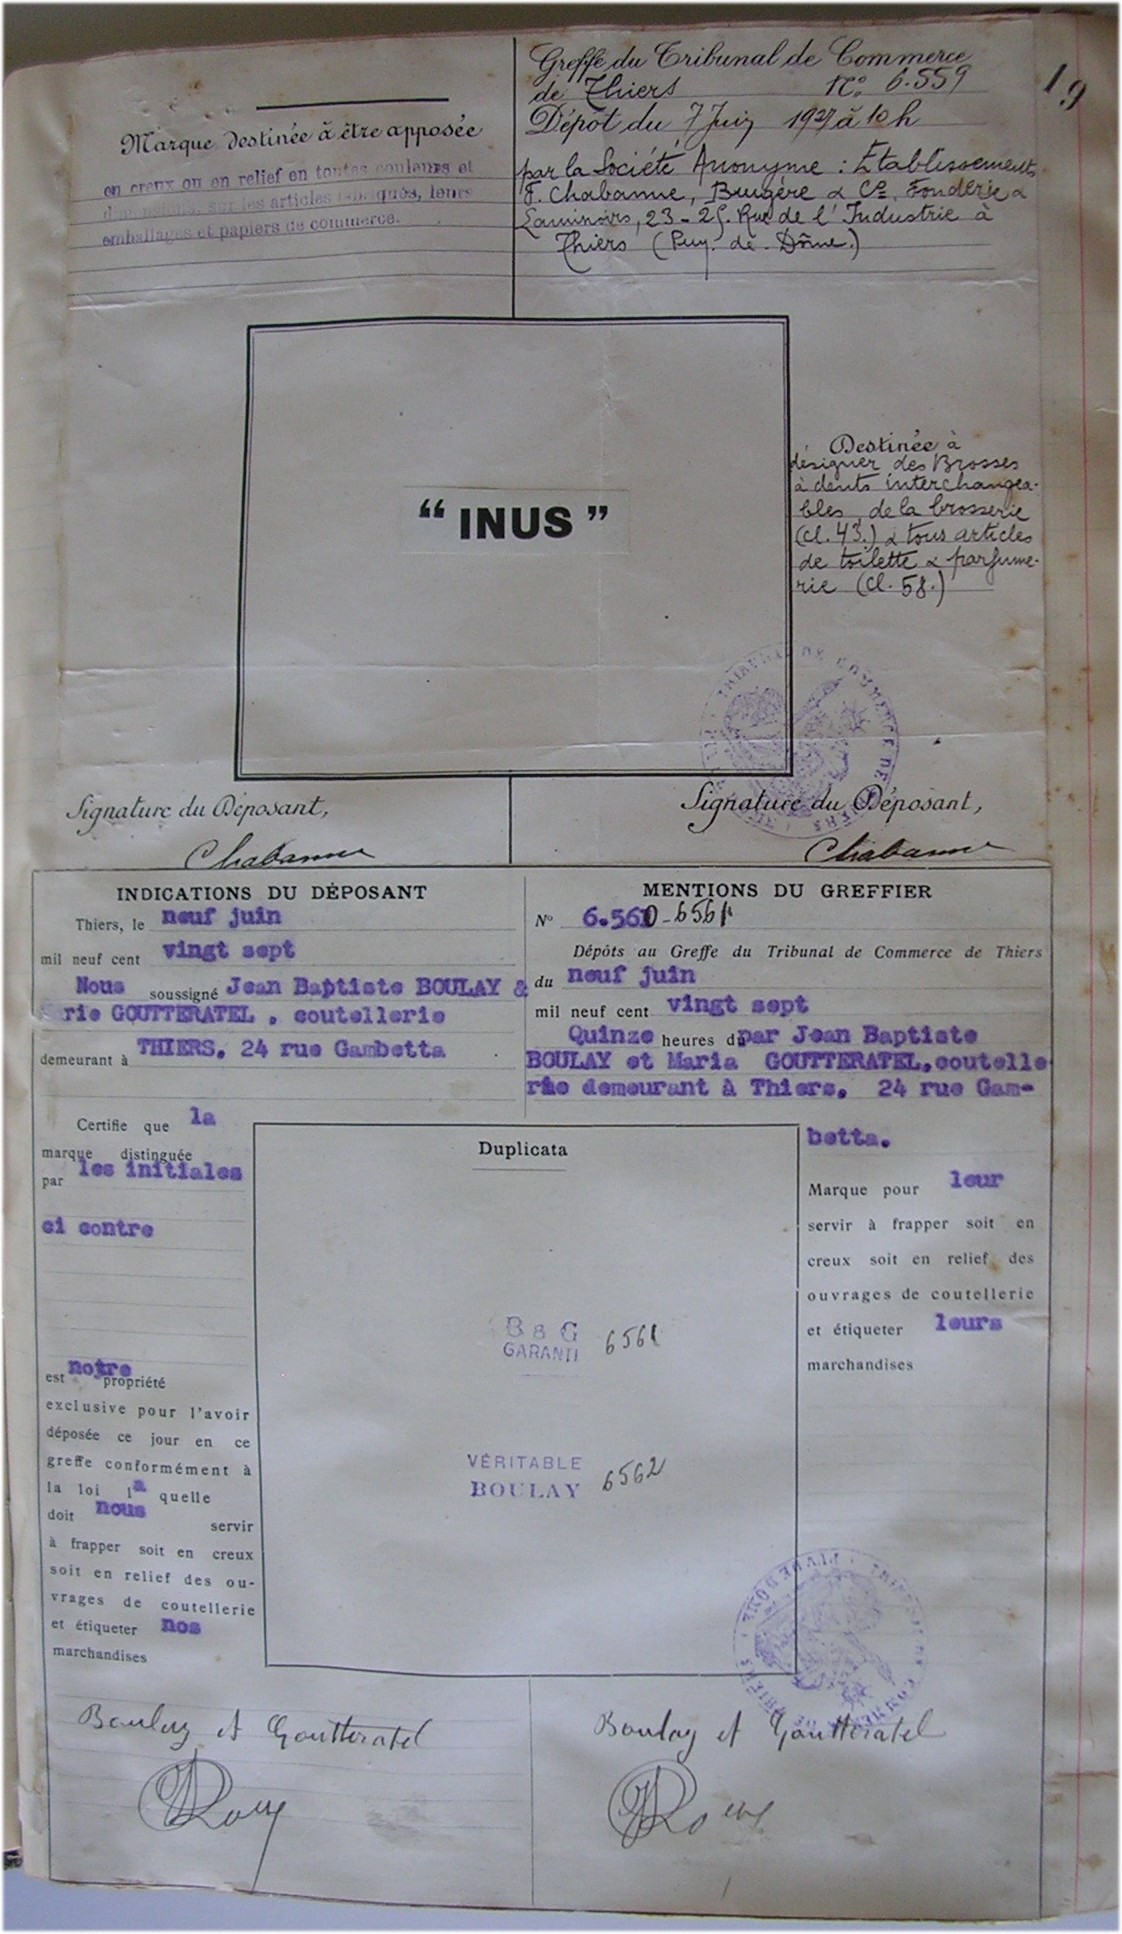 19
Marque destinée à être apposée
en creux ou en relief en toutes couleurs et
dimensions, sur les articles fabriqués, leurs
emballages et papiers de commerce.
Greffe du Tribunal de Commerce
de Thiers No. 6.559
Dépôt du 7 Juin 1927 à 10 h
par la Société Anonyme : Etablissements
F. Chabanne, Bugère & Co. Fonderie &
Laminoirs, 23-25. Rue de l'Industrie à
Thiers (Puy-de-Dôme.)
“ INUS ”
Destinée à
désigner des Brosses
à dents interchangea-
bles, de la brosserie
(cl. 43.) & tous articles
de toilette & parfume-
rie (cl. 58.)
TRIBUNAL DE COMMERCE DE THIERS
Signature du Déposant,
Chabanne
Signature du Déposant,
Chabanne
INDICATIONS DU DÉPOSANT
Thiers, le neuf juin
mil neuf cent vingt sept
Nous soussigné Jean Baptiste BOULAY &
rie GOUTTERATEL , coutellerie
demeurant à THIERS. 24 rue Gambetta
Certifie que la
marque distinguée
par les initiales
ci contre
est notre propriété
exclusive pour l'avoir
déposée ce jour en ce
greffe conformément à
la loi la quelle
doit nous servir
à frapper soit en creux
soit en relief des ou-
vrages de coutellerie
et étiqueter nos
marchandises
MENTIONS DU GREFFIER
No 6.560-6561
Dépôts au Greffe du Tribunal de Commerce de Thiers
du neuf juin
mil neuf cent vingt sept
Quinze heures par Jean Baptiste
BOULAY et Maria GOUTTERATEL, coutelle
rie demeurant à Thiers. 24 rue Gam-
betta.
Duplicata
B & G
GARANTI 6561
VÉRITABLE
BOULAY 6562
Marque pour leur
servir à frapper soit en
creux soit en relief des
ouvrages de coutellerie
et étiqueter leurs
marchandises
Boulay et Goutteratel
Boulay et Goutteratel